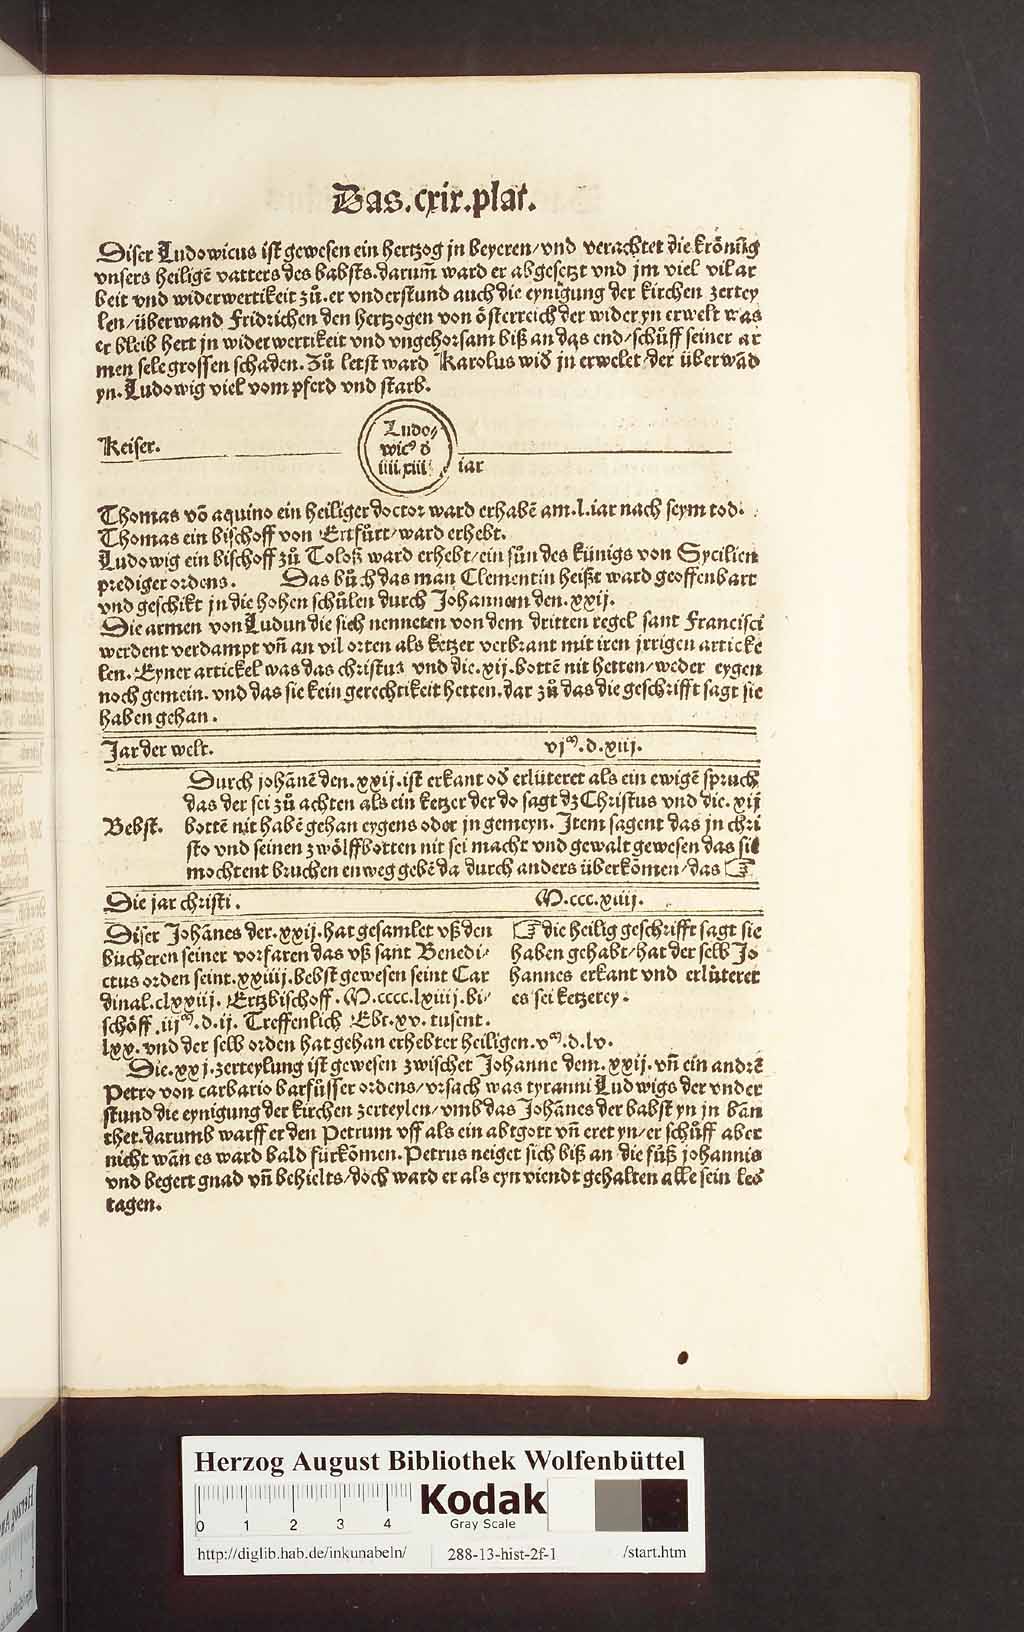 Das.cxix.plat.
Diser Ludowicus ist gewesen ein hertzog jn beyeren/vnd verachtet die krönũg
vnsers heiligẽ vatters des babsts.darum̃ ward er abgesetzt vnd jm viel vil ar
beit vnd widerwertikeit zů.er vnderstund auch die eynigung der kirchen zertey
len/überwand Fridrichen den hertzogen von österreich der wider yn erwelt was
er bleib hert jn widerwertikeit vnd vngehorsam biß an das end/schůff seiner ar
men sele grossen schaden. Zů letst ward Karolus wid̕ jn erwelet/der überwãd
yn. Ludowig viel vom pferd vnd starb.
Keiser.
Ludo⸗
wicꝰ d̕
iiii.xiii
iar
Thomas võ aquino ein heiliger doctor ward erhabẽ am.l.iar nach seym tod.
Thomas ein bischoff von Ertfůrt/ward erhebt.
Ludowig ein bischoff zů Toloß ward erhebt/ein sůn des künigs von Sycilien
prediger ordens. Das bůch das man Clementin heißt ward geoffenbart
vnd geschikt jn die hohen schůlen durch Johannem den.xxij.
Die armen von Ludun die sich nenneten von dem dritten regel sant Francisci
werdent verdampt vñ an vil orten als ketzer verbrant mit iren jrrigen articke
len. Eyner artickel was das christus vnd die.xij.bottẽ nit hetten/weder eygen
noch gemein. vnd das sie kein gerechtikeit hetten.dar zů das die geschrifft sagt sie
haben gehan.
Jar der welt. vjᵐ.d.xiij.
Durch johãnẽ den.xxij.ist erkant od̕ erlüteret als ein ewigẽ spruch
das der sei zů achten als ein ketzer der do sagt dz Christus vnd die.xij
Bebst. bottẽ nit habẽ gehan eygens oder jn gemeyn. Item sagent das jn chri
sto vnd seinen zwölffbotten nit sei macht vnd gewalt gewesen das sie
mochtent bruchen enweg gebẽ da durch anders überkõmen/das ☞
Die jar christi. M.ccc.xiiij.
Diser Johãnes der.xxij.hat gesamlet vß den
bücheren seiner vorfaren das vß sant Benedi⸗
ctus orden seint.xxiiij.bebst gewesen seint Car
dinal.clxxiij. Ertzbischoff.M.cccc.lxiiij.bi⸗
schöff.iijᵐ.d.ij. Treffenlich Ebt.xv.tusent.
lxx.vnd der selb orden hat gehan erhebter heiligen.vᵐ.d.lv.
☞ die heilig geschrifft sagt sie
haben gehabt/hat der selb Jo
hannes erkant vnd erlüteret
es sei ketzerey.
Die.xxj.zerteylung ist gewesen zwischet Johanne dem.xxij.vñ ein andrẽ
Petro von carbario barfůsser ordens/vrsach was tyranni Ludwigs der vnder
stund die eynigung der kirchen zerteylen/vmb das Johãnes der babst yn jn ban
thet.darumb warff er den Petrum vff als ein abtgott vñ eret yn/er schůff aber
nicht wãn es ward bald fürkõmen.Petrus neiget sich biß an die fůß johannis
vnd begert gnad vñ behielts/doch ward er als eyn viendt gehalten alle sein lebͤ
tagen.
Herzog August Bibliothek Wolfenbüttel
0 1 2 3 4
Kodak
Gray Scale
http://diglib.hab.de/inkunabeln/ 288-13-hist-2f-1 /start.htm